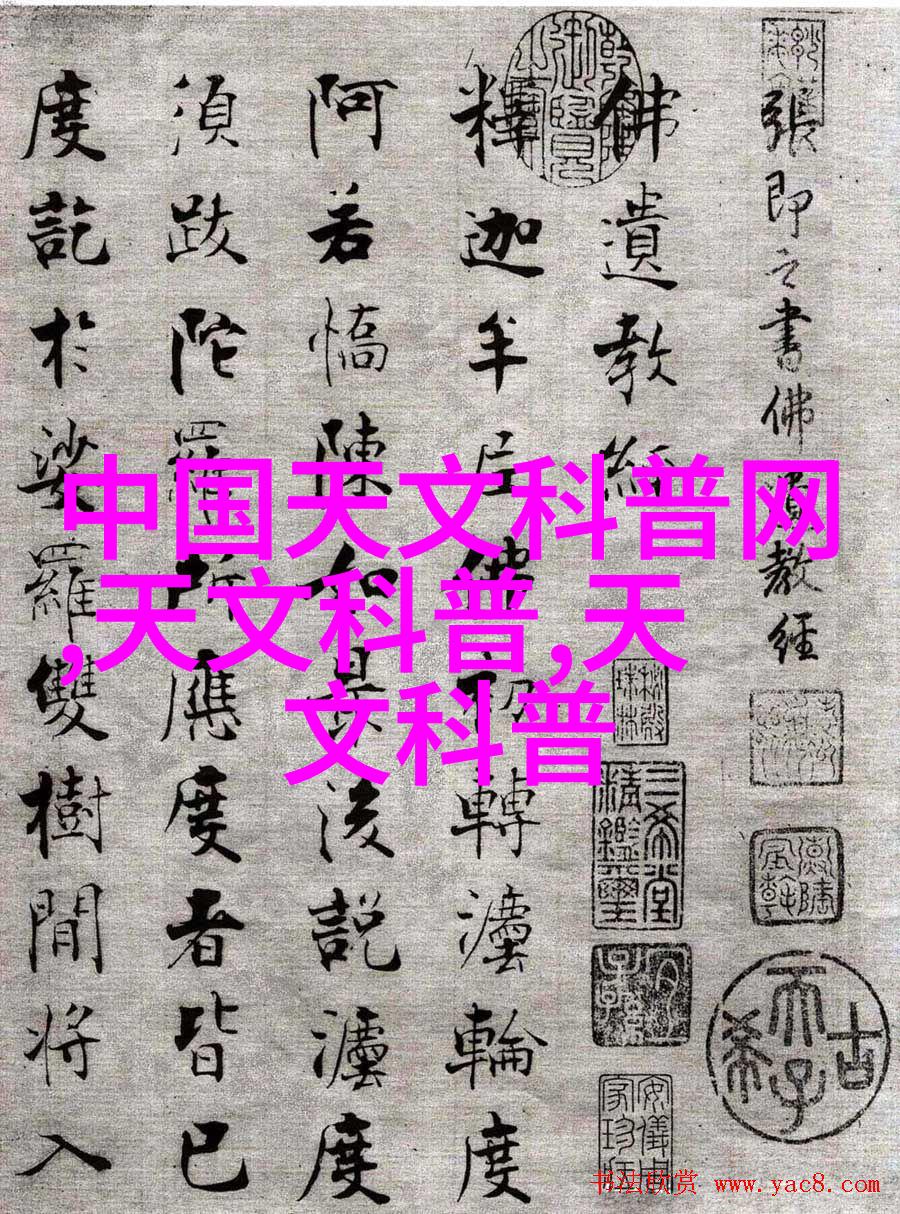 張即之書佛遺教經
佛遺教經
釋迦牟尼佛初轉法輪度
阿若憍陳如最後說法度
須跋陀羅所應度者皆已
度訖於娑羅雙樹間將入
中国天文科普网
,天文科普,天
文科普
三希堂
精鑑璽
古希天子
书法欣赏 www.yac8.com